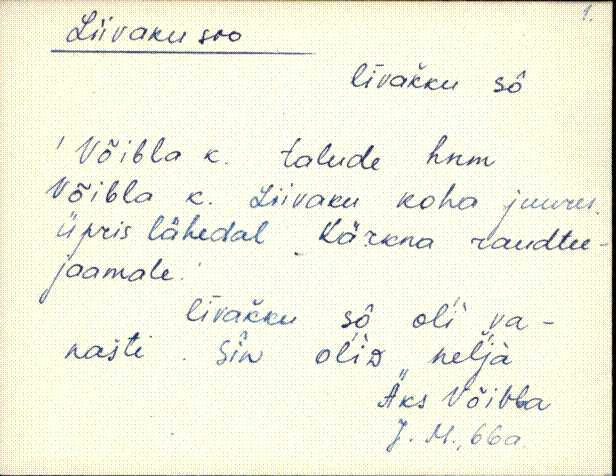 1.
Liivaku soo
līvakku sô
! Võibla k. talude hnm
Võibla k. Liivaku koha juures.
üpris lähedal Kärkna raudtee-
jaamale.
līvakku sô oli va-
nasti. Sîn olid nelja
Äks Võibla
J. M., 66a.